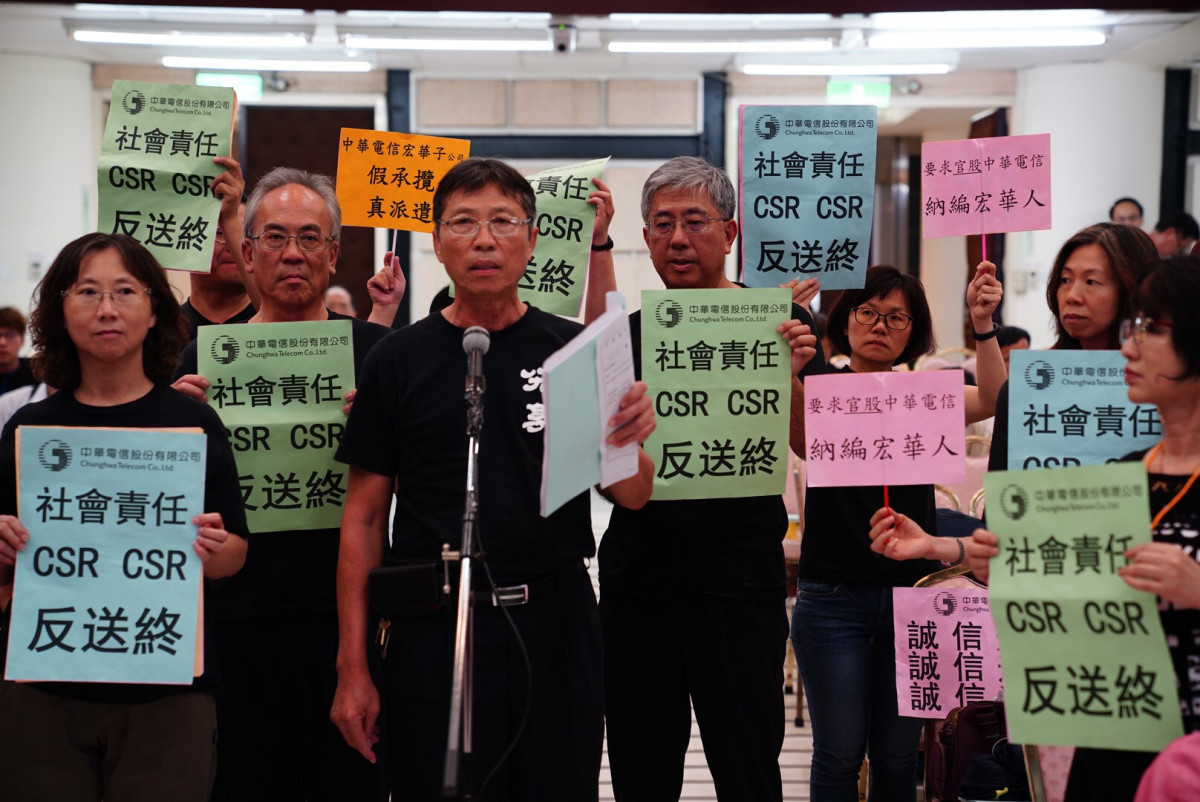 中華電信股份有限公司
Chunghwa Telecom Co., Ltd.
社會責任
CSR CSR
反送終
中華電信宏華子公司
假承攬
真派遣
責任
CSR
送終
中華電信股份有限公司
Chunghwa Telecom Co., Ltd.
社會責任
CSR CSR
反送終
要求官股中華電信
納編宏華人
中華電信股份有限公司
Chunghwa Telecom Co., Ltd.
社會責任
CSR CSR
反送終
中華電信股份有限公司
Chunghwa Telecom Co., Ltd.
社會責任
CSR CSR
反送終
中華電信股份有限公司
Chunghwa Telecom Co., Ltd.
社會責任
CSR CSR
反送終
要求官股中華電信
納編宏華人
中華電信股份有限公司
Chunghwa Telecom Co., Ltd.
社會責任
中華電信股份有限公司
Chunghwa Telecom Co., Ltd.
社會責任
CSR CSR
反送終
中華電信
Chunghwa
誠 信
誠 信
誠 信
中華電信股份有限公司
Chunghwa Telecom Co., Ltd.
社會責任
CSR CSR
反送終